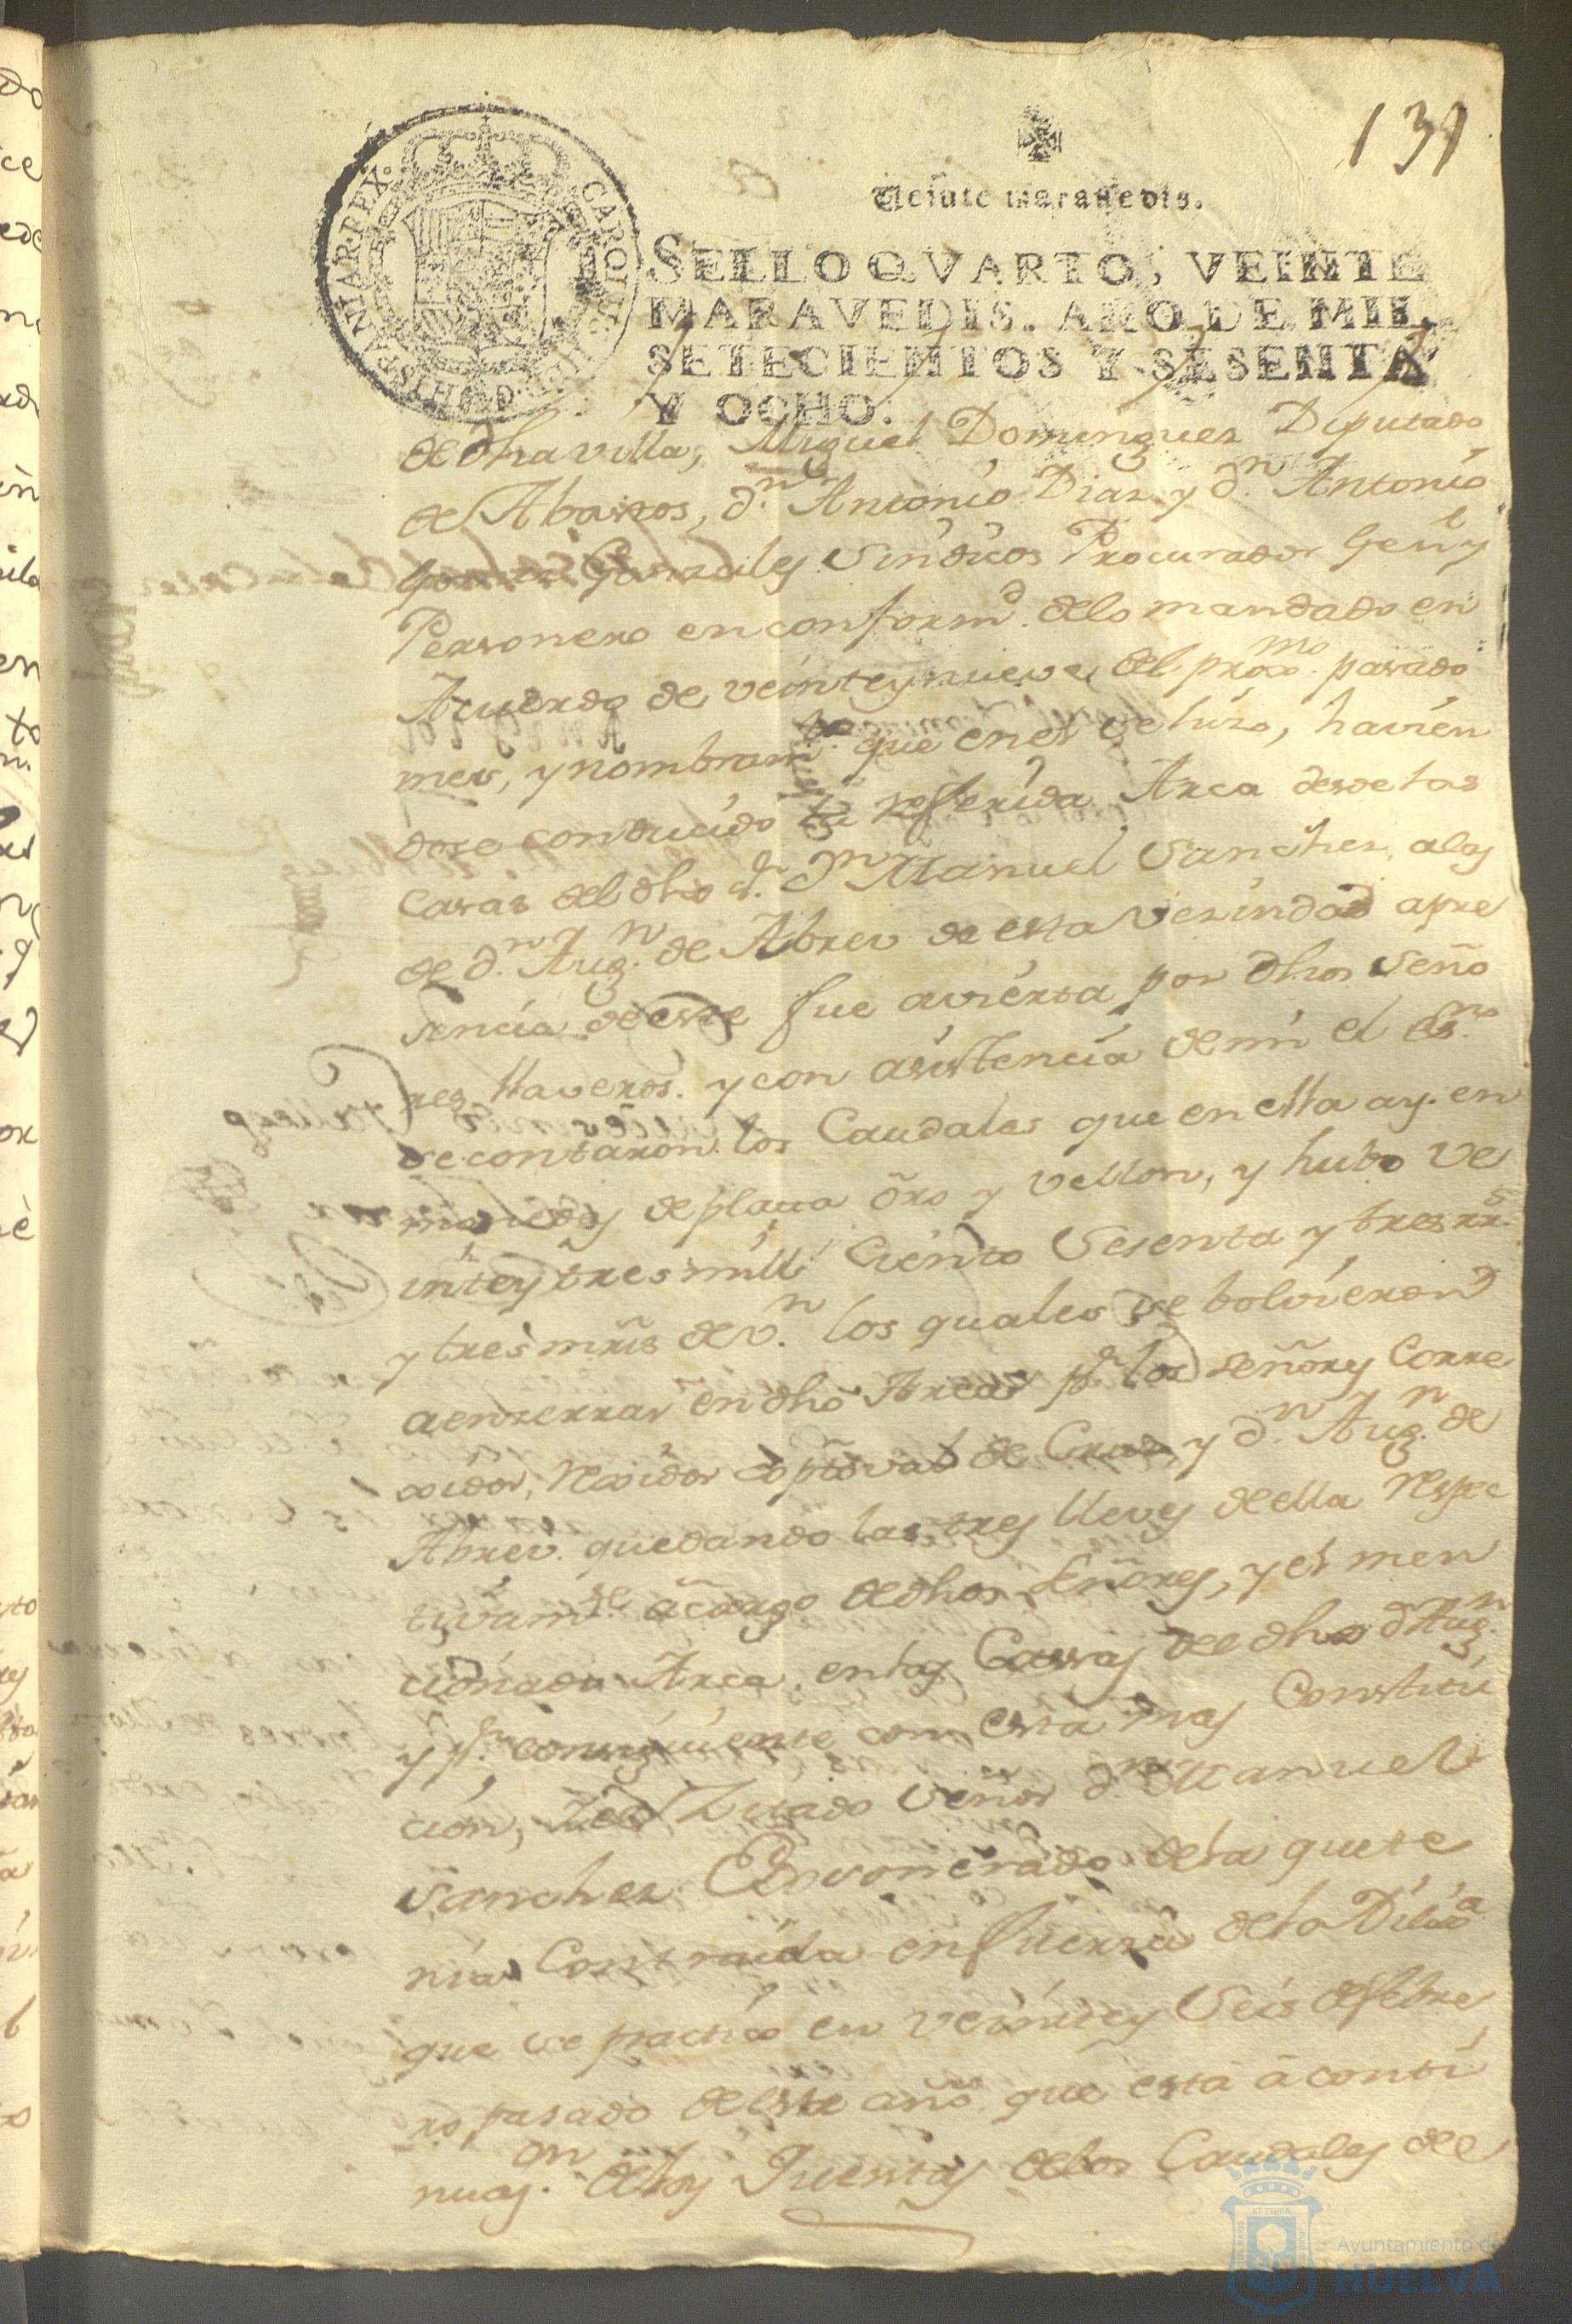 131
Veinte maravedis.
SELLO QVARTO, VEINTE
MARAVEDIS, AÑO DE MIL
SETECIENTOS Y SESENTA
Y OCHO.
CAROLVS III D G HISPANIAR REX
de dha villa, Miguel Dominguez Diputado
de Abastos, dn. Antonio Diaz y dn. Antonio
Gonzales Sindicos Procurador Genl y
Personero en conformd. de lo mandado en
Acuerdo de veinte y nueve del proxmo. pasado
mes, y nombramto. que en el se hizo, havien
dose conducido la referida Arca desde las
casas del dho sr. Dn Manuel Sanchez, a las
de dn. Augn. de Abreu de esta Vezindad a pre
sencia de este fue avierta por dhos Seño
res Llaveros. y con asistencia de mi el Esno.
se contaron los Caudales que en ella ay. en
monedas de plata oro y vellon, y hubo ve
inte y tres mill Ciento Sesenta y tres rrs.
y tres mrs de vn. los quales se bolvieron
a enzerrar en dho Arca pr. los señores Corre
xidor, Rexidor Xptoval de Cruz, y dn. Augn. de
Abreu. quedando las tres lleves de ella respec
tivamte. a cargo de dhos Señores, y el men
cionado Arca, en las Casas del dho dn Augn.
y pr. consiguiente con esta mas Constitu
cion, Zitado Señor dn Manuel
Sanchez Exsonerado de la que te
nia Contraida en fuerza de la Dilixa
que se practico en veinte y Seis de febre
ro pasado de este año que esta a conti
nuaon. de las Quentas de los Caudales de
Ayuntamiento de
HUELVA